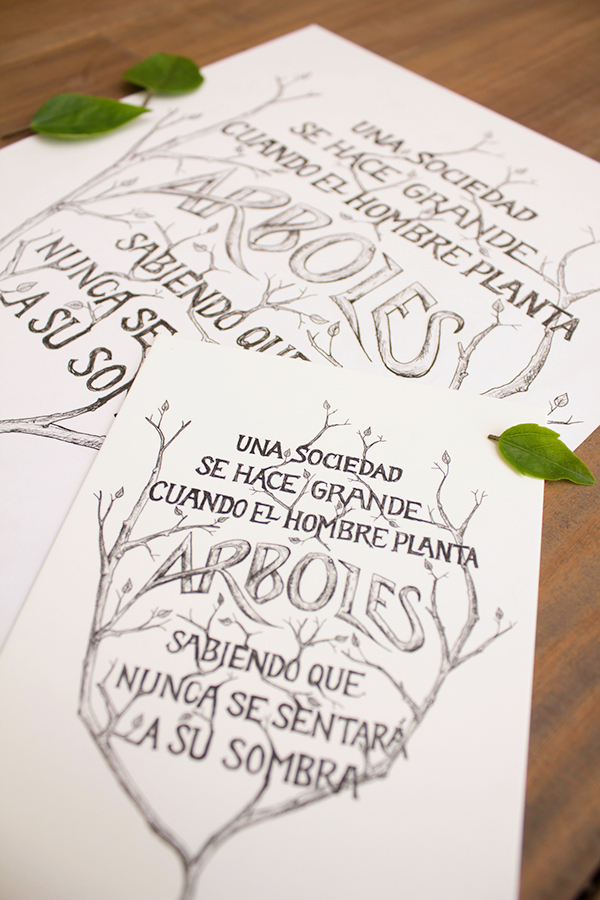 UNA SOCIEDAD
SE HACE GRANDE
CUANDO EL HOMBRE PLANTA
ARBOLES
SABIENDO QUE
NUNCA SE
LA SU SO
UNA SOCIEDAD
SE HACE GRANDE
CUANDO EL HOMBRE PLANTA
ARBOLES
SABIENDO QUE
NUNCA SE SENTARÁ
A SU SOMBRA